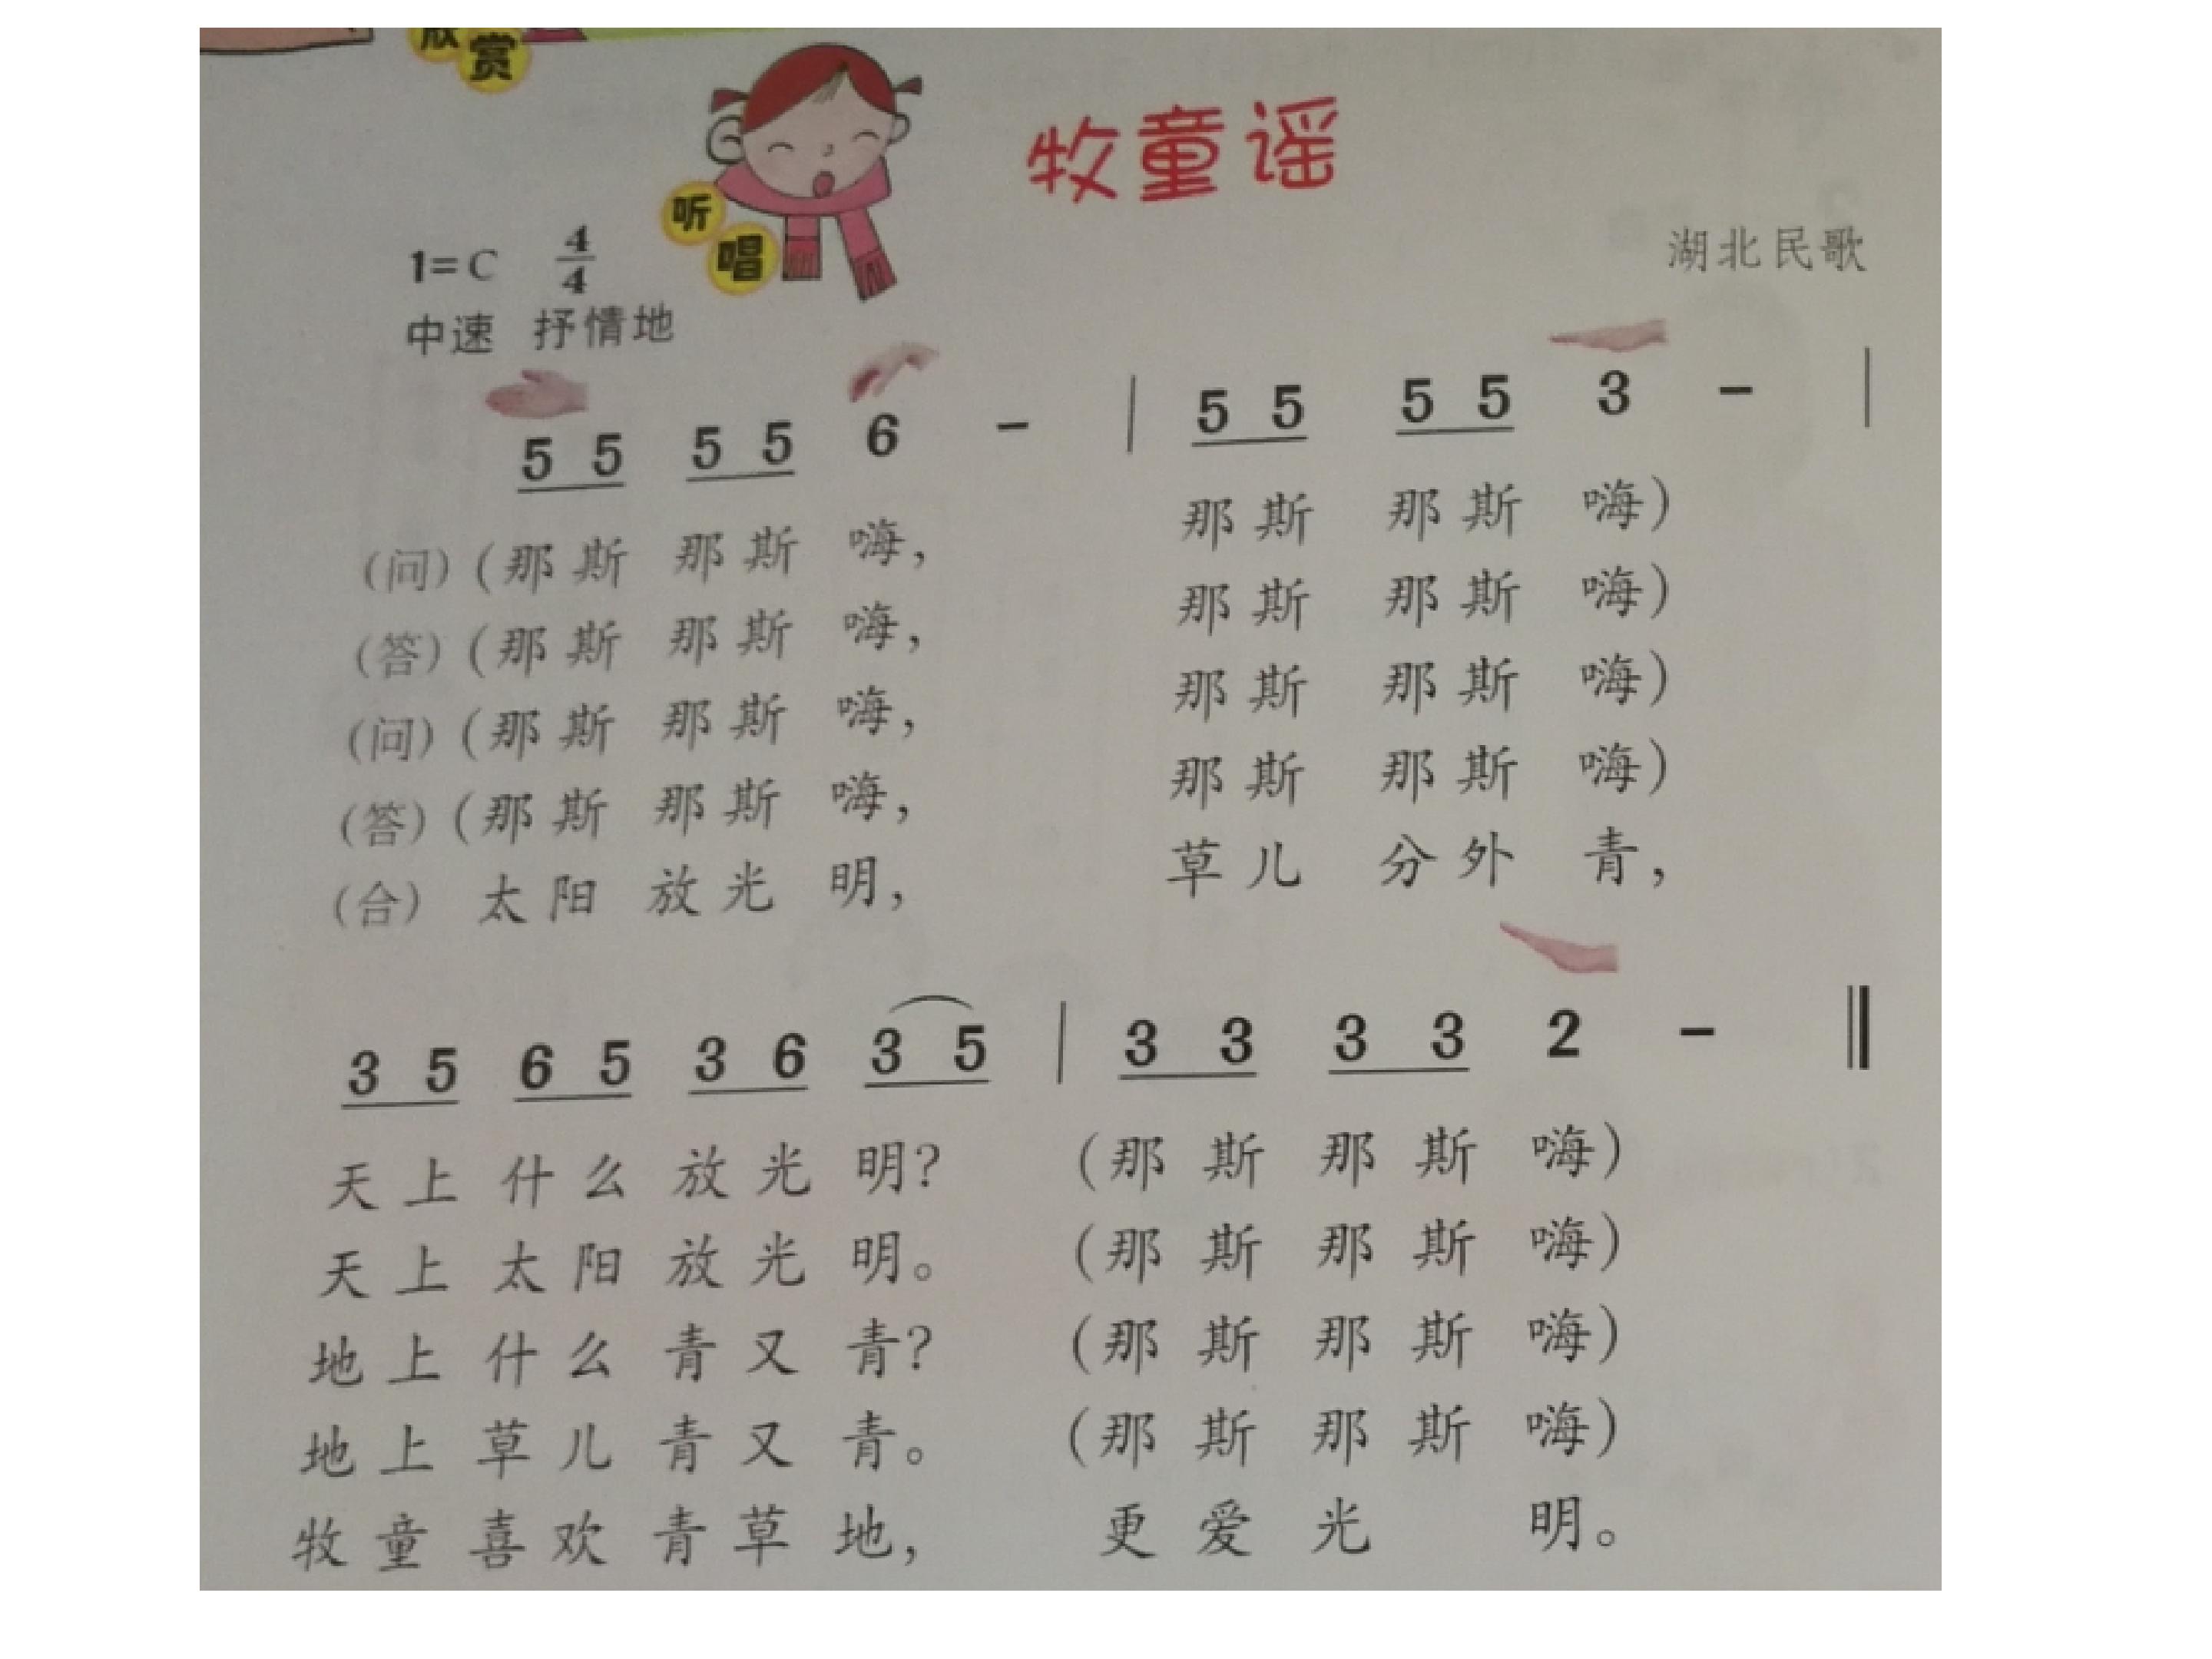 欣赏
牧童谣
听唱
湖北民歌
1=C 4/4
中速 抒情地
5 5 5 5 6 – | 5 5 5 5 3 – |
(问) (那斯 那斯 嗨, 那斯 那斯 嗨)
(答) (那斯 那斯 嗨, 那斯 那斯 嗨)
(问) (那斯 那斯 嗨, 那斯 那斯 嗨)
(答) (那斯 那斯 嗨, 那斯 那斯 嗨)
(合) 太阳 放光 明, 草儿 分外 青,
3 5 6 5 3 6 3 5 | 3 3 3 3 2 – ‖
天上 什么 放光 明? (那斯 那斯 嗨)
天上 太阳 放光 明。 (那斯 那斯 嗨)
地上 什么 青又 青? (那斯 那斯 嗨)
地上 草儿 青又 青。 (那斯 那斯 嗨)
牧童 喜欢 青草 地, 更爱 光 明。